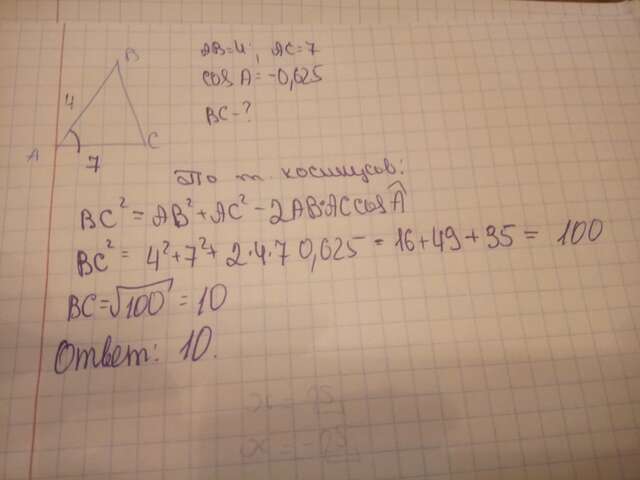 AB=4; AC=7
cos A=-0,625
BC-?
B
4
A
7
C
По т. косинусов:
BC² = AB² + AC² - 2AB·AC cos Â
BC² = 4² + 7² + 2·4·7 0,625 = 16+49+35 = 100
BC=√100 = 10
Ответ: 10.